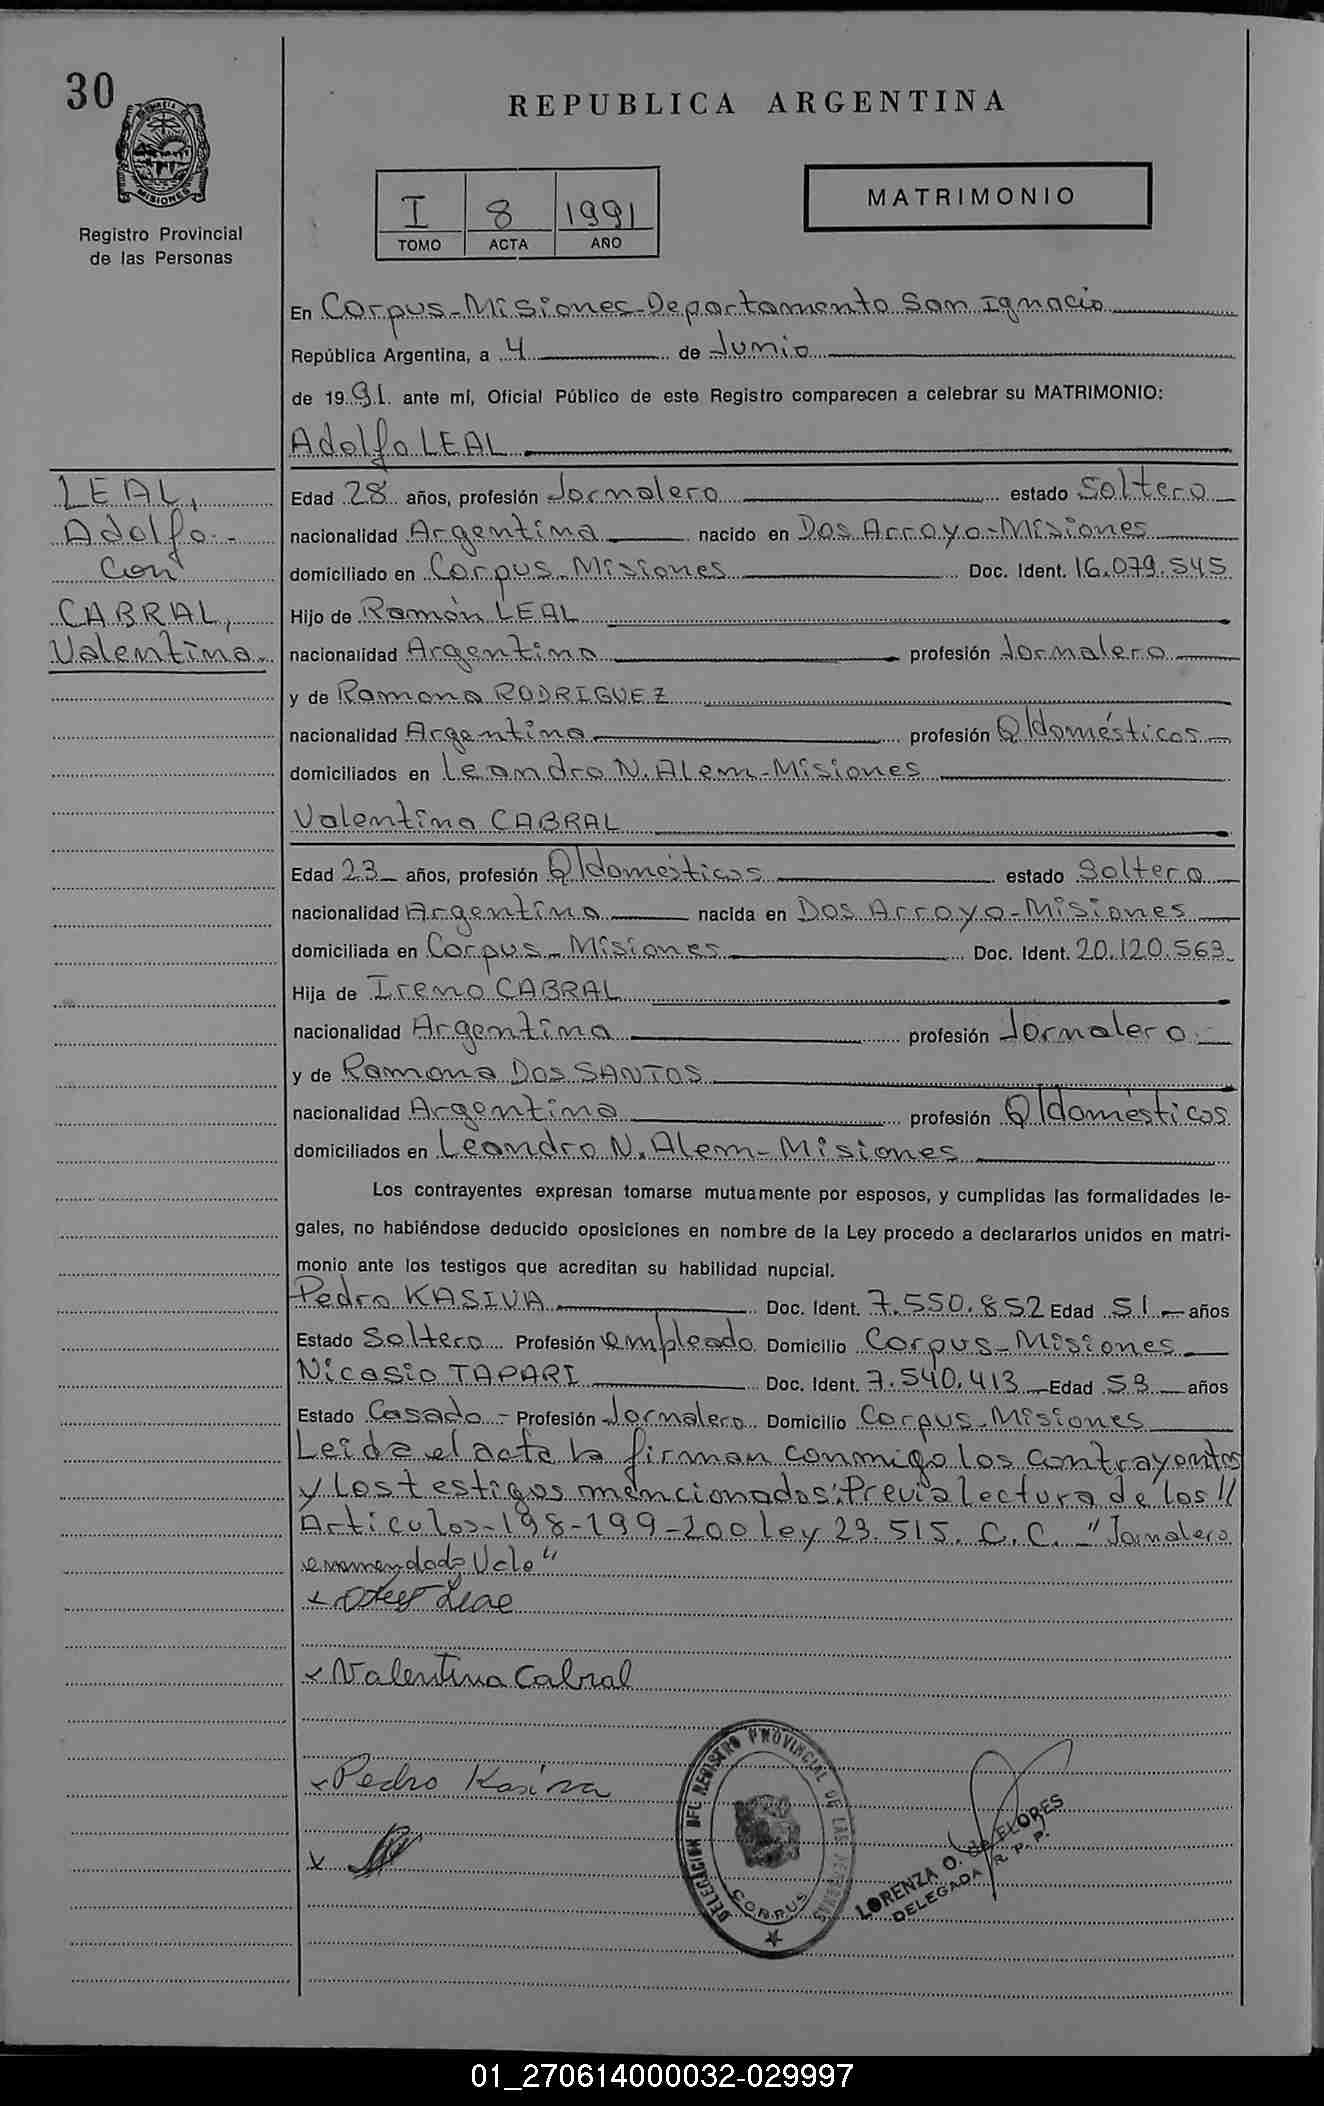 30
REPUBLICA ARGENTINA
MISIONES
Registro Provincial
de las Personas
I 8 1991
TOMO ACTA AÑO
MATRIMONIO
En Corpus-Misiones-Departamento San Ignacio
República Argentina, a 4 de Junio
de 1991. ante mí, Oficial Público de este Registro comparecen a celebrar su MATRIMONIO:
Adolfo LEAL
LEAL,
Adolfo.-
Con
CABRAL,
Valentina.
Edad 28 años, profesión Jornalero estado Soltero
nacionalidad Argentina nacido en Dos Arroyo-Misiones
domiciliado en Corpus-Misiones Doc. Ident. 16.079.545
Hijo de Ramón LEAL
nacionalidad Argentina profesión Jornalero
y de Ramona RODRIGUEZ
nacionalidad Argentina profesión Q/domésticos
domiciliados en Leandro N. Alem-Misiones
Valentina CABRAL
Edad 23 años, profesión Q/domésticos estado Soltera
nacionalidad Argentina nacida en Dos Arroyo-Misiones
domiciliada en Corpus-Misiones Doc. Ident. 20.120.563
Hija de Ireno CABRAL
nacionalidad Argentina profesión Jornalero.
y de Ramona Dos SANTOS
nacionalidad Argentina profesión Q/domésticos
domiciliados en Leandro N. Alem-Misiones
Los contrayentes expresan tomarse mutuamente por esposos, y cumplidas las formalidades le-
gales, no habiéndose deducido oposiciones en nombre de la Ley procedo a declararlos unidos en matri-
monio ante los testigos que acreditan su habilidad nupcial.
Pedro KASIVA Doc. Ident. 7.550.852 Edad 51 años
Estado Soltero Profesión empleado Domicilio Corpus-Misiones
Nicasio TAPARI Doc. Ident. 7.540.413 Edad 53 años
Estado Casado - Profesión Jornalero Domicilio Corpus-Misiones
Leida el acta la firman conmigo los contrayentes
y los testigos mencionados: Previa lectura de los //
Articulos-198-199-200 ley 23.515. C.C. - "Jornalero
enmendado Vale"
x Leal
x Valentina Cabral
x Pedro Kasiva
x
DELEGACION DEL REGISTRO PROVINCIAL DE LAS PERSONAS
CORPUS
LORENZA O. de FLORES
DELEGADA R. P. P.
01_270614000032-029997